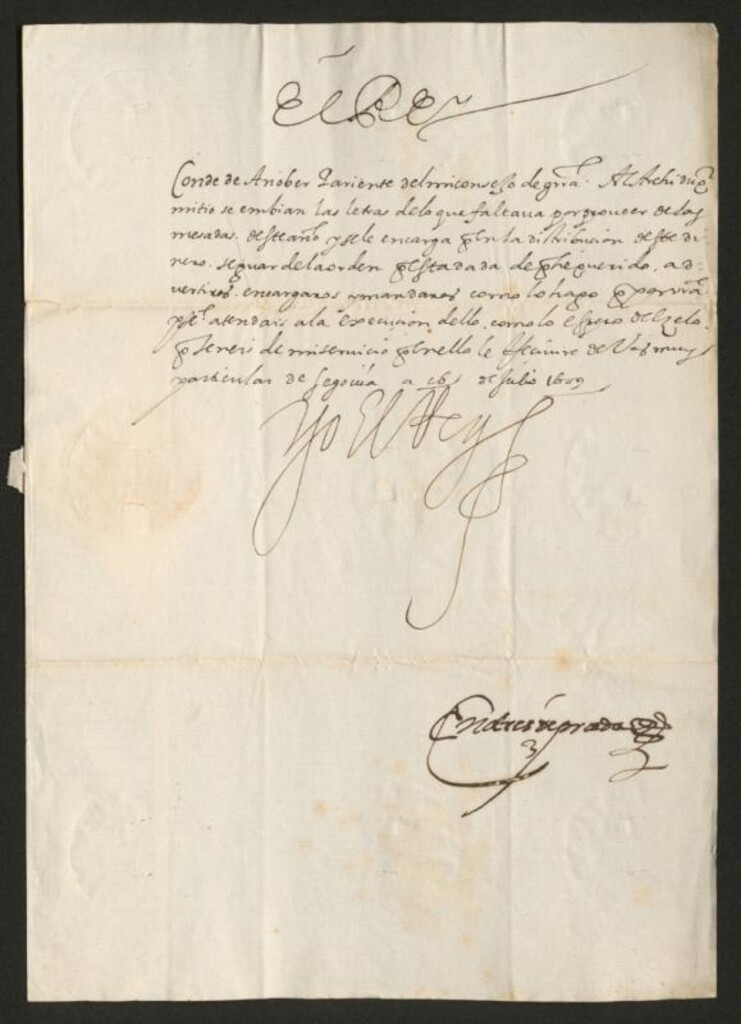 El Rey
Conde de Añober Pariente del mi consejo de grra. Al Archiduq̄
mi tio se embian las letras de lo que faltaua por proueer de las
mesadas deste año y se le encarga q̄ en la distribucion deste di-
nero se guarde la orden q̄ esta dada de q̄ he querido ad-
uertiros encargaros y mandaros como lo hago q̄ por vrā
pte atendais a la execucion dello, como lo espero del zelo
q̄ teneis de mi seruicio q̄ en ello le Reciuire de Vos muy
particular de Segouia a 26 de Julio 1609
Yo El Rey
Andres de prada